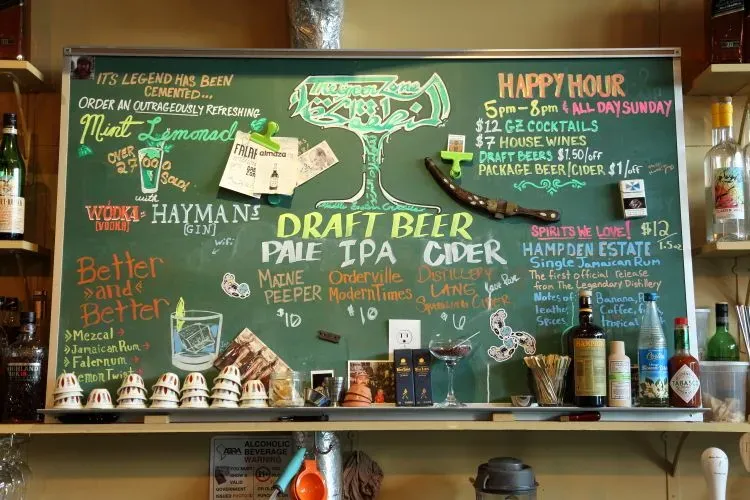 IT'S LEGEND HAS BEEN
CEMENTED...,
ORDER AN OUTRAGEOUSLY REFRESHING
Mint Lemonad
OVER
27
SOLD!
with
WÓDKA
[VODKA]
HAYMAN'S
[GIN]
wifi
Better
»and«
Better
»Mezcal
»Jamaican Rum
»Falernum
Lemon Twist
The Green Zone
المنطقة الخضراء
Middle Eastern Cocktails
almaza
DRAFT BEER
PALE IPA CIDER
MAINE
PEEPER
$10
Orderville
Modern Times
$10
DISTILLERY
LANE
Cider
$6
HAPPY HOUR
5pm-8pm & ALL DAY SUNDAY
$12 GZ COCKTAILS
$7 HOUSE WINES
DRAFT BEERS $1.50/off
PACKAGE BEER/CIDER $1/off
SPIRITS WE LOVE! $12
1.5oz
HAMPDEN ESTATE
Single Jamaican Rum
The first official release
from The Legendary Distillery
Notes of Banana,
leather, Coffee,
Spices, Tropical
HAMPDEN
TABASCO
HIGHLAND PARK
ABRA ALCOHOLIC
BEVERAGE
WARNING